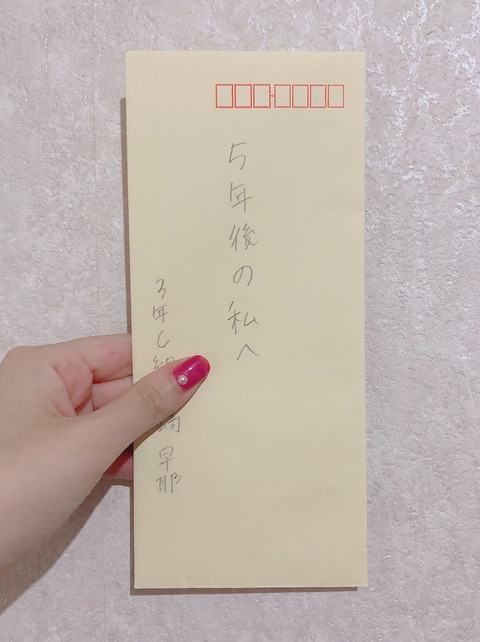 5年後の私へ
3年C組 崎 早耶